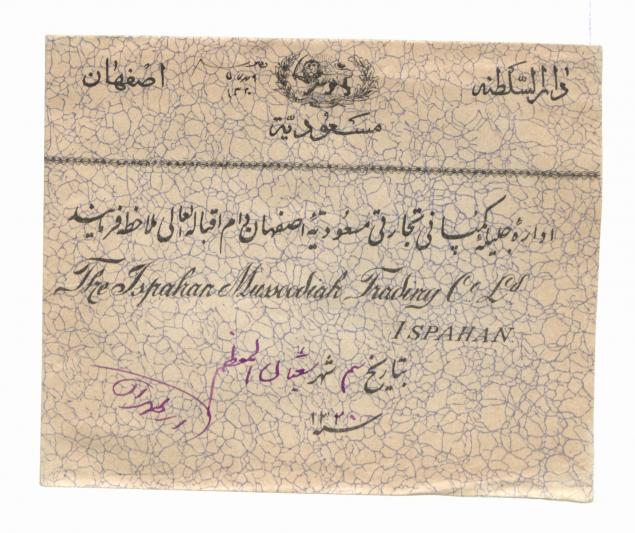 دارالسلطنه اصفهان
مسعودیّة
ادارهٔ جلیلهٔ کمپانی تجارتی مسعودیهٔ اصفهان دام اقباله العالی ملاحظه فرمایند
The Ispahan Mussoodiah Trading Co Ld
ISPAHAN
بتاریخ شهر شعبان المعظم
سنه ۱۳۲۰
از طهران